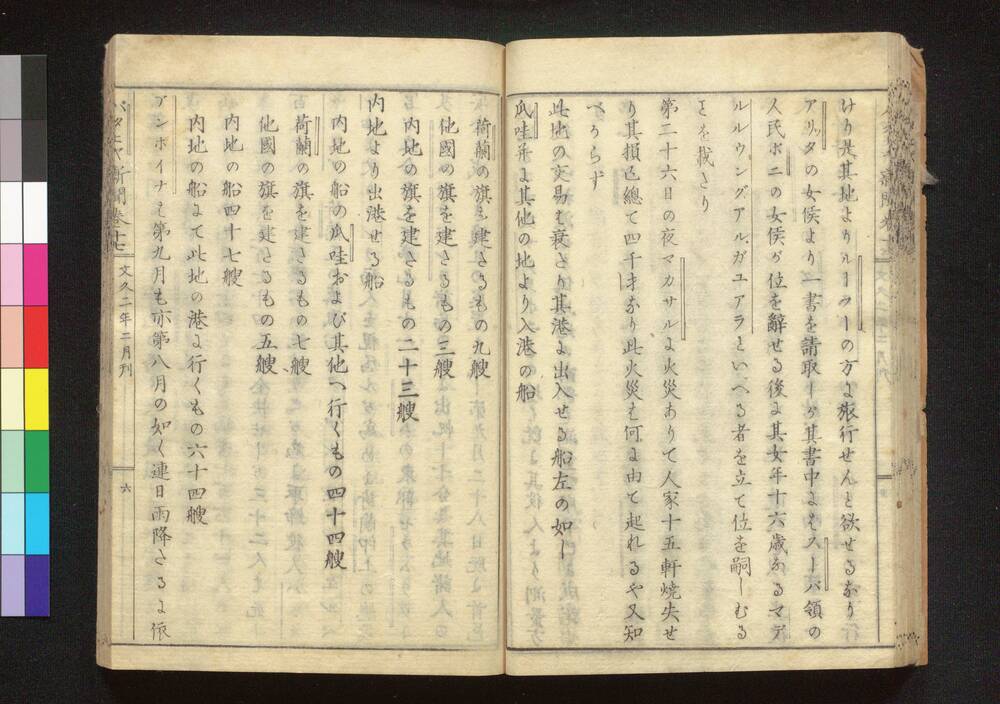 けり是其地よりルーウーの方よ旅行せんと欲せるなり
アリッタの女侯より一書を請取しが其書中よはスーパ領の
人民ボニの女侯が位を辭せる後よ其女年十六歳なるマデ
ルルウングアルガユアラといへる者を立て位を嗣しむる
とを載さり
第二十六日の夜マカサルよ火災ありて人家十五軒焼失せ
り其損已總て四千才なり此火災も何よ由て起れるや又知
べからず
此地の交易も衰とり其港よ出入せる船左の如し
爪哇并よ其他の地より入港の船
荷蘭の旗を建さるもの九艘
他國の旗を建さるもの三艘
内地の旗を建さるもの二十三艘
内地より出港せる船
内地の船の爪哇および其他へ行くもの四十四艘
荷蘭の旗を建さるもの七艘
他國の旗を建さるもの五艘
内地の船四十七艘
内地の船よて此地の港よ行くもの六十四艘
アンボイナも第九月も亦第八月の如く連日雨降さるよ依
バタヒヤ新聞巻十七
文久二年二月刊
六